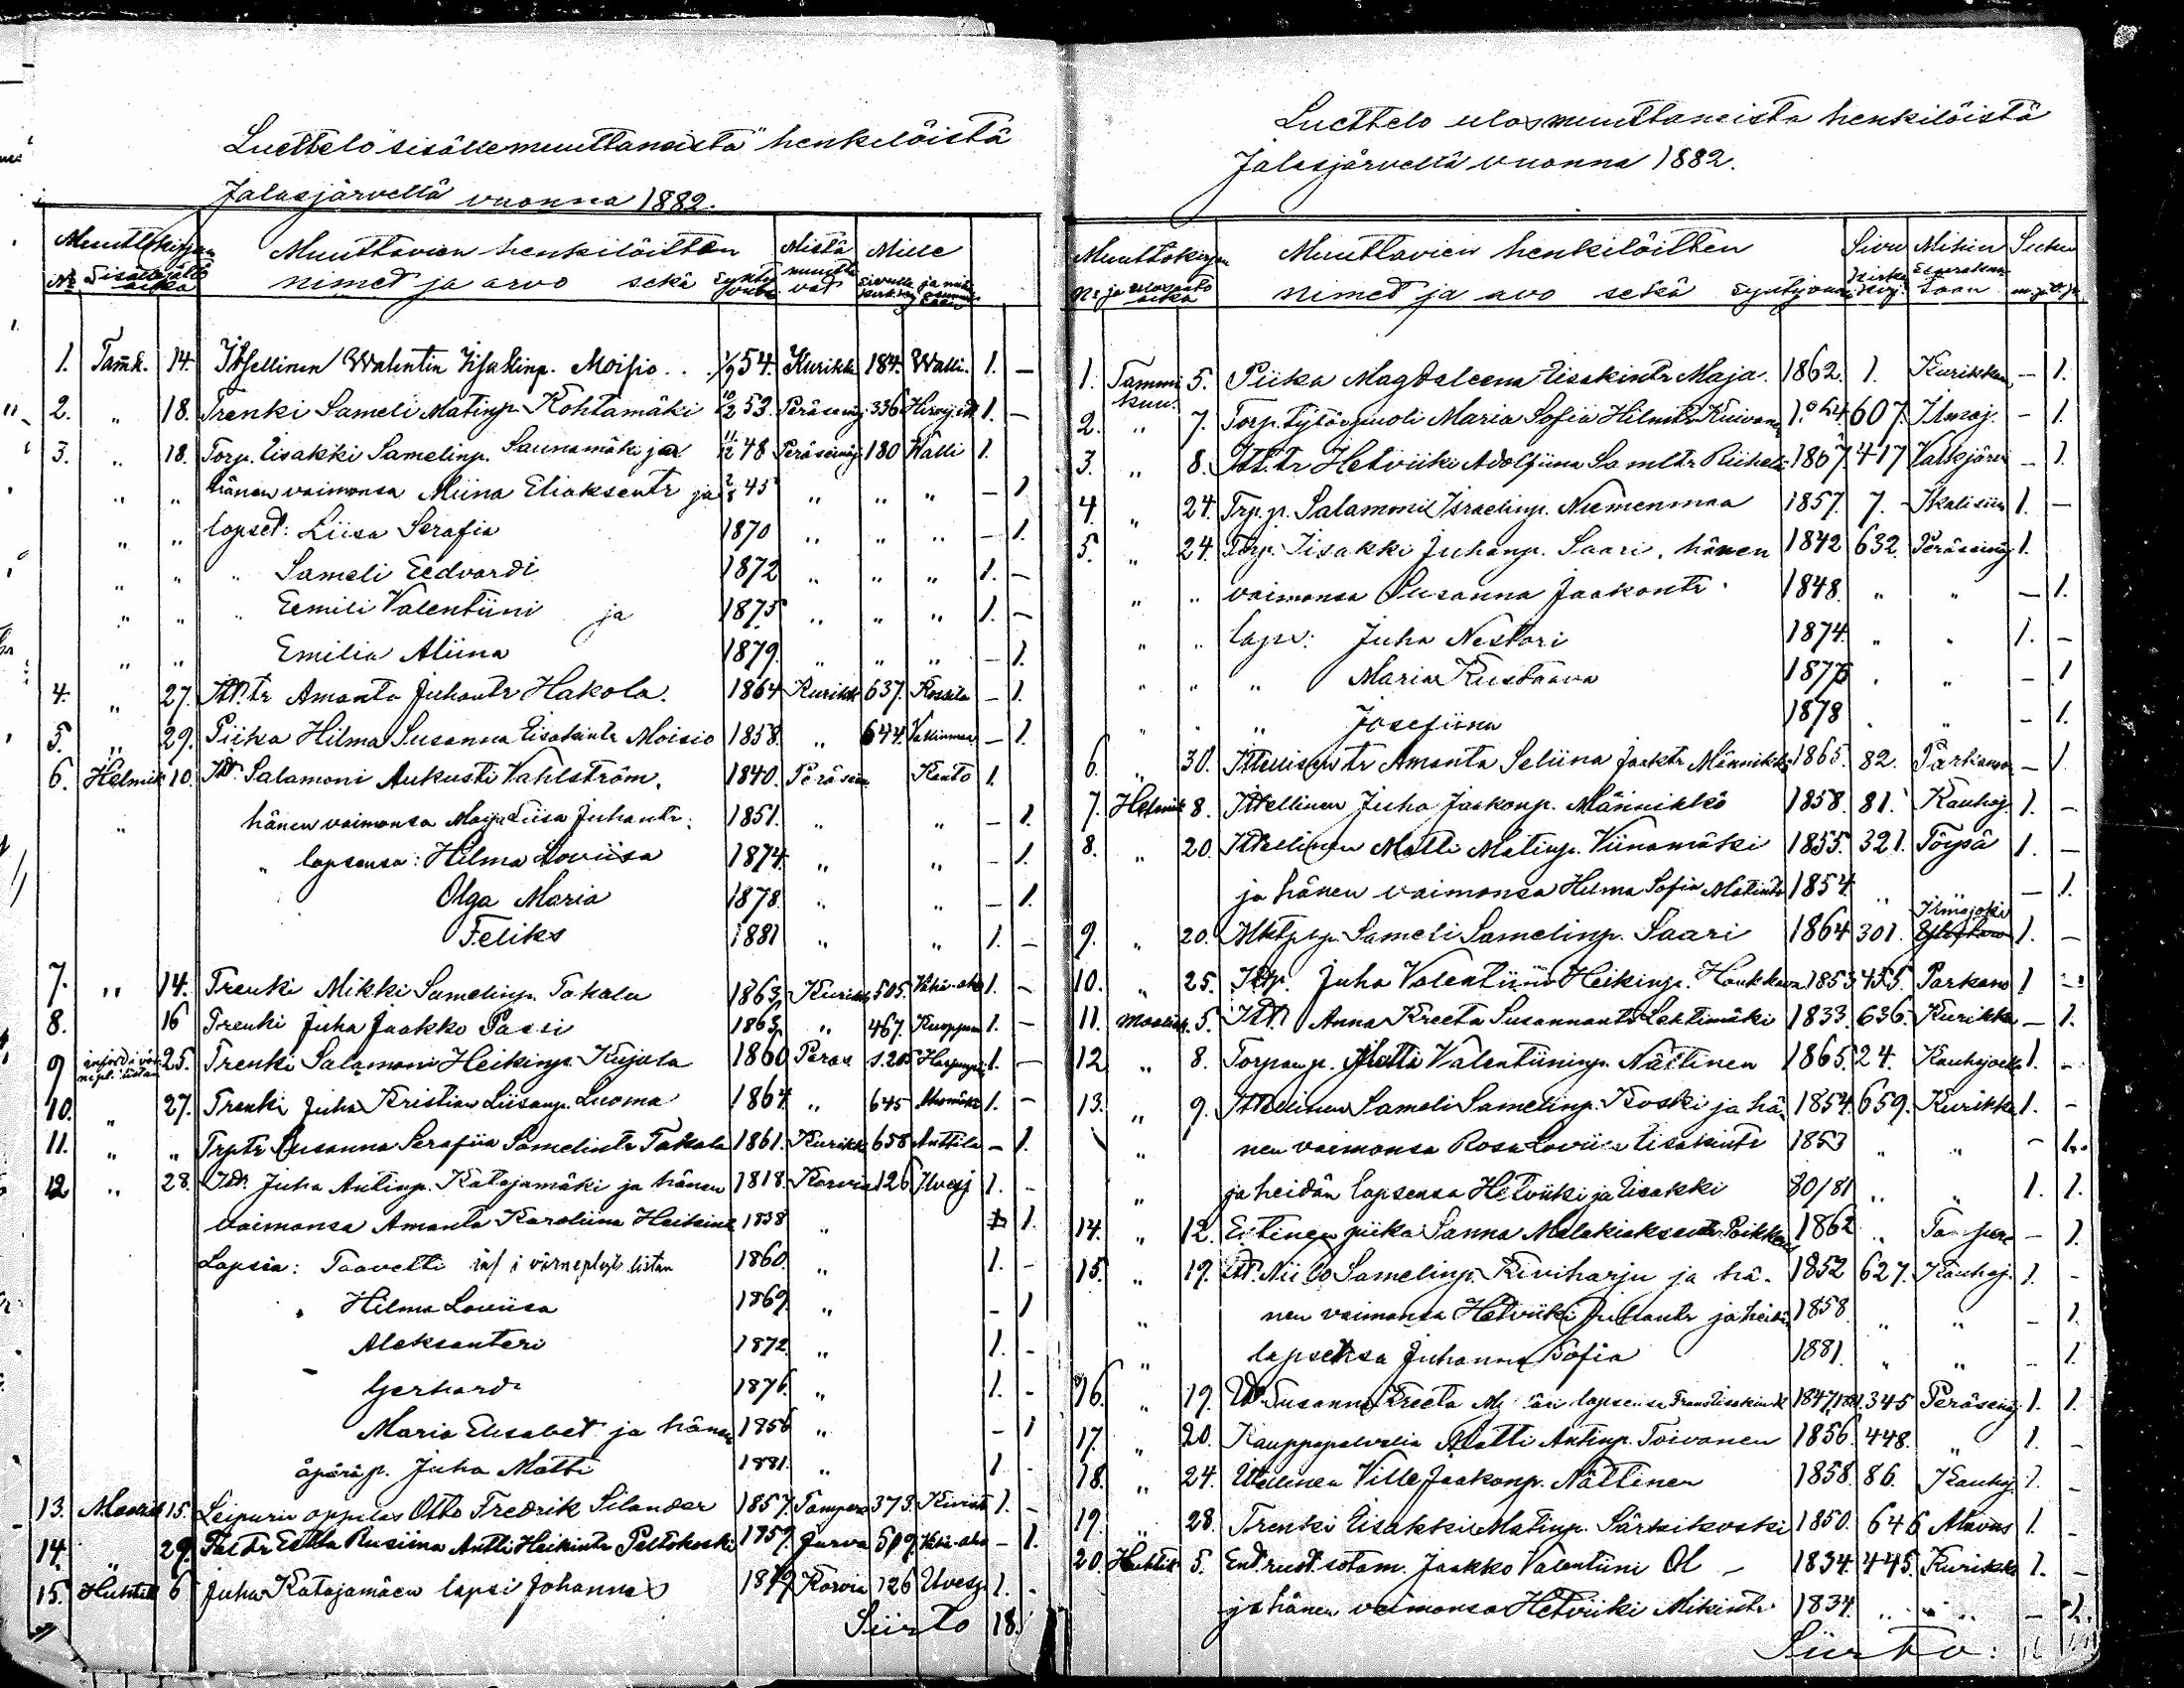 Luettelo sisällemuuttaneista henkilöistä
Jalasjärvellä vuonna 1882.
Muuttokirjan Muuttavien henkilöitten Mistä Mille
No Sisälle aika nimet ja arvo sekä synty muutta vat sivulle ja
1. Tamk. 14. Itsellinen Walentin Iisakinp. Moisio . . 54. Kurikk. 184. Walli. 1. —
2. „ 18. Trenki Sameli Matinp. Kohtamäki 10/2 53 Peräseinj. 336 1. —
3. „ 18. Torp. Iisakki Samelinp. Saunamäki ja 11/12 48 Peräseinj 180 Walli 1.
„ „ hänen vaimonsa Miina Eliaksentr ja 2/8 45 „ „ „ — 1
„ „ lapset: Liisa Serafia 1870 „ „ „ — 1.
„ „ „ Sameli Eedvardi 1872 „ „ „ 1. —
„ „ „ Eemili Valentiini ja 1875 „ „ „ 1. —
„ „ Emilia Aliina 1879. „ „ „ — 1.
4. „ 27. Itl. tr Amanta Juhontr Hakola. 1864 Kurikk 637. Koskela — 1.
5. „ 29. Piika Hilma Susanna Iisakintr Moisio 1858. „ 644. — 1.
6. Helmik 10. Itl. Salamoni Aukusti Vahlström. 1840. Peräsein Kento 1.
„ hänen vaimonsa Maija Liisa Juhantr. 1851. „ „ — 1.
„ lapsensa: Hilma Loviisa 1874. „ „ — 1.
Olga Maria 1878. „ „ — 1.
Feliks 1881 „ „ 1. —
7. „ 14. Trenki Mikki Samelinp. Takala 1863 Kurikk 505. 1. —
8. 16 Trenki Juha Jaakko Passi 1863 „ 467. 1. —
9 25. Trenki Salamoni Heikinp. Kujala 1860 Peräs 1. —
10. „ 27. Trenki Juha Kristian Liisanp. Luoma 1864. „ 645 1. —
11. „ „ Trptr Susanna Serafiia Samelintr Takala 1861. Kurikk 658 Anttila — 1.
12 „ 28. Itl. Juha Antinp. Katajamäki ja hänen 1818. Karvia 126 Ilvesj 1. -
vaimonsa Amanta Karoliina Heikint 1838 „ 1.
Lapsia: Taavetti inf i värnepligts listan 1860. „ 1. -
„ Hilma Loviisa 1869. „ - 1
Aleksanteri 1872. „ 1. -
Gerhard 1876. „ 1. -
Maria Elisabet ja hänen 1856 „ - 1
äpäräp. Juha Matti 1881. „ 1 -
13. Maalisk 15. Leipurin oppilas Otto Fredrik Silander 1857. Tampere 373. 1. -
14. „ 29. Eetla Rusiina Antti Heikintr Peltokoski 1859. Jurva 509. - 1.
15. Huhtik 6 Juha Katajamäen lapsi Johannes 1879 Karvia 126 Ilvesj. 1. -
Siirto 18.
Luettelo ulosmuuttaneista henkilöistä
Jalasjärveltä vuonna 1882.
Muuttokirjan Muuttavien henkilöitten Sivu Mihin Suku
No ja ulosanto aika nimet ja arvo sekä syntyvuosi Kirkk. kirj. Seurakun taan m.p. v.p.
1. Tammi kuu. 5. Piika Magdaleena Iisakintr Maja. 1862. 1. Kurikkaan — 1.
2. „ 7. Torp. tytärpuoli Maria Sofia Hilmtr 607. Ilmaj. — 1.
3. „ 8. Itl. tr Hetviiki Adolfiina Samltr 1867. 417 — 1.
4. „ 24. Trp.p. Salamoni Israelinp. Niemenmaa 1857. 7. Ikalisiin 1. —
5. „ 24. Torp. Iisakki Juhanp. Saari, hänen 1842 632. Peräseinäj 1.
„ „ vaimonsa Susanna Jaakontr 1848. „ „ — 1.
„ „ laps: Juha Nestori 1874. „ „ 1. —
„ „ „ Maria Kustaava 187 „ „ — 1
„ „ „ Josefiina 1878 „ „ — 1.
6. „ 30. Itellisen tr Amanta Seliina Jaaktr Männikkö 1865. 82. Parkanoon — 1
7. Helmik 8. Itsellinen Juha Jaakonp. Männikkö 1858. 81. Kauhaj. 1. —
8. „ 20. Itsellinen Matti Matinp. Viinamäki 1855. 321. Töysä 1. —
ja hänen vaimonsa Hilma Sofia Matintr 1854 „ „ — 1.
9. „ 20. Sameli Samelinp. Saari 1864 301. Ilmajoki 1. —
10. „ 25. Juha Valentiini Heikinp. Haukkava 1853 455. Parkano 1 —
11. Maalisk. 5. Itl. Anna Kreeta Susannantr Lehtimäki 1833. 636. Kurikka — 1.
12 „ 8. Torpanp. Matti Valentiininp. Nättinen 1865. 24. Kauhajoelle 1. -
13. „ 9. Itsellinen Sameli Samelinp. Koski ja hä- 1854. 659. Kurikka 1. -
„ nen vaimonsa Rosa Loviisa Iisakintr 1853 „ „ - 1.
„ ja heidän lapsensa Hetviiki ja Iisakki 80/81 „ „ 1. 1.
14. „ 12. Entinen piika Sanna Malakiaksentr 1862 „ Tampere - 1.
15. „ 19. Itl. Niilo Samelinp. Kiviharju ja hä- 1852 627. Kauhaj. 1. -
„ nen vaimonsa Hetviiki Juhantr ja heidän 1858. „ „ - 1.
„ lapsensa Juhanna Sofia 1881. „ „ - 1.
16. „ 19. Itl. Susanna Kreeta lapsensa 345 Peräseinj. 1. 1.
17. „ 20. Kauppapalvelia Matti Antinp. Toivanen 1856. 448. „ 1. -
18. „ 24. Itsellinen Ville Jaakonp. Nättinen 1858. 86. Kauhaj. 1. -
19. „ 28. Trenki Iisakki Matinp. Särkikoski 1850. 646 Alavus 1. -
20. Huhtik 5. Ent. ruot. sotam. Jaakko Valentiini Ol — 1834. 445. Kurikka 1. -
ja hänen vaimonsa Hetviiki Mikintr 1834. „ „ — 1.
Siirto: